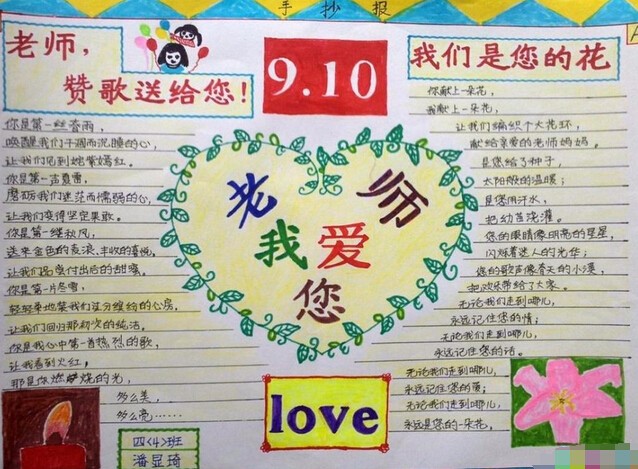 手抄报
老师,
赞歌送给您!
9.10
我们是您的花
你是第一丝春雨,
唤醒我们干涸而沉睡的心,
让我们见到姹紫嫣红。
你是第一声夏雷,
磨砺我们迷茫而懦弱的心,
让我们变得坚定果敢。
你是第一缕秋风,
送来金色的麦浪、丰收的喜悦,
让我们品尝付出后的甜蜜。
你是第一片冬雪,
轻轻率地装我们过分缤纷的心房,
让我们回归那初次的纯洁。
你是我心中第一首热烈的歌,
让我看到火红,
那是你燃烧的光,
多么美,
多么亮……
四<4>班
潘显琦
老师
我爱
您
love
你献上一朵花,
我献上一朵花,
让我们编织个大花环,
献给亲爱的老师妈妈。
是您给了种子,
太阳般的温暖;
是您用汗水,
把幼苗浇灌。
您的眼睛像明亮的星星,
闪烁着迷人的光华;
您的歌声像春天的小溪,
把欢乐带给了大家。
无论我们走到哪儿,
永远记住您的情;
无论我们走到哪儿,
永远记住您的话。
无论我们走到哪儿,
永远记住您的爱;
无论我们走到哪儿,
永远是您的一朵花。